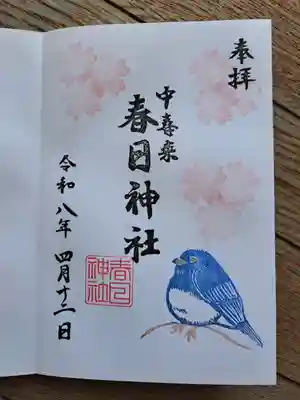 奉拝
中喜来
春日神社
春日
神社
令和八年 四月十二日